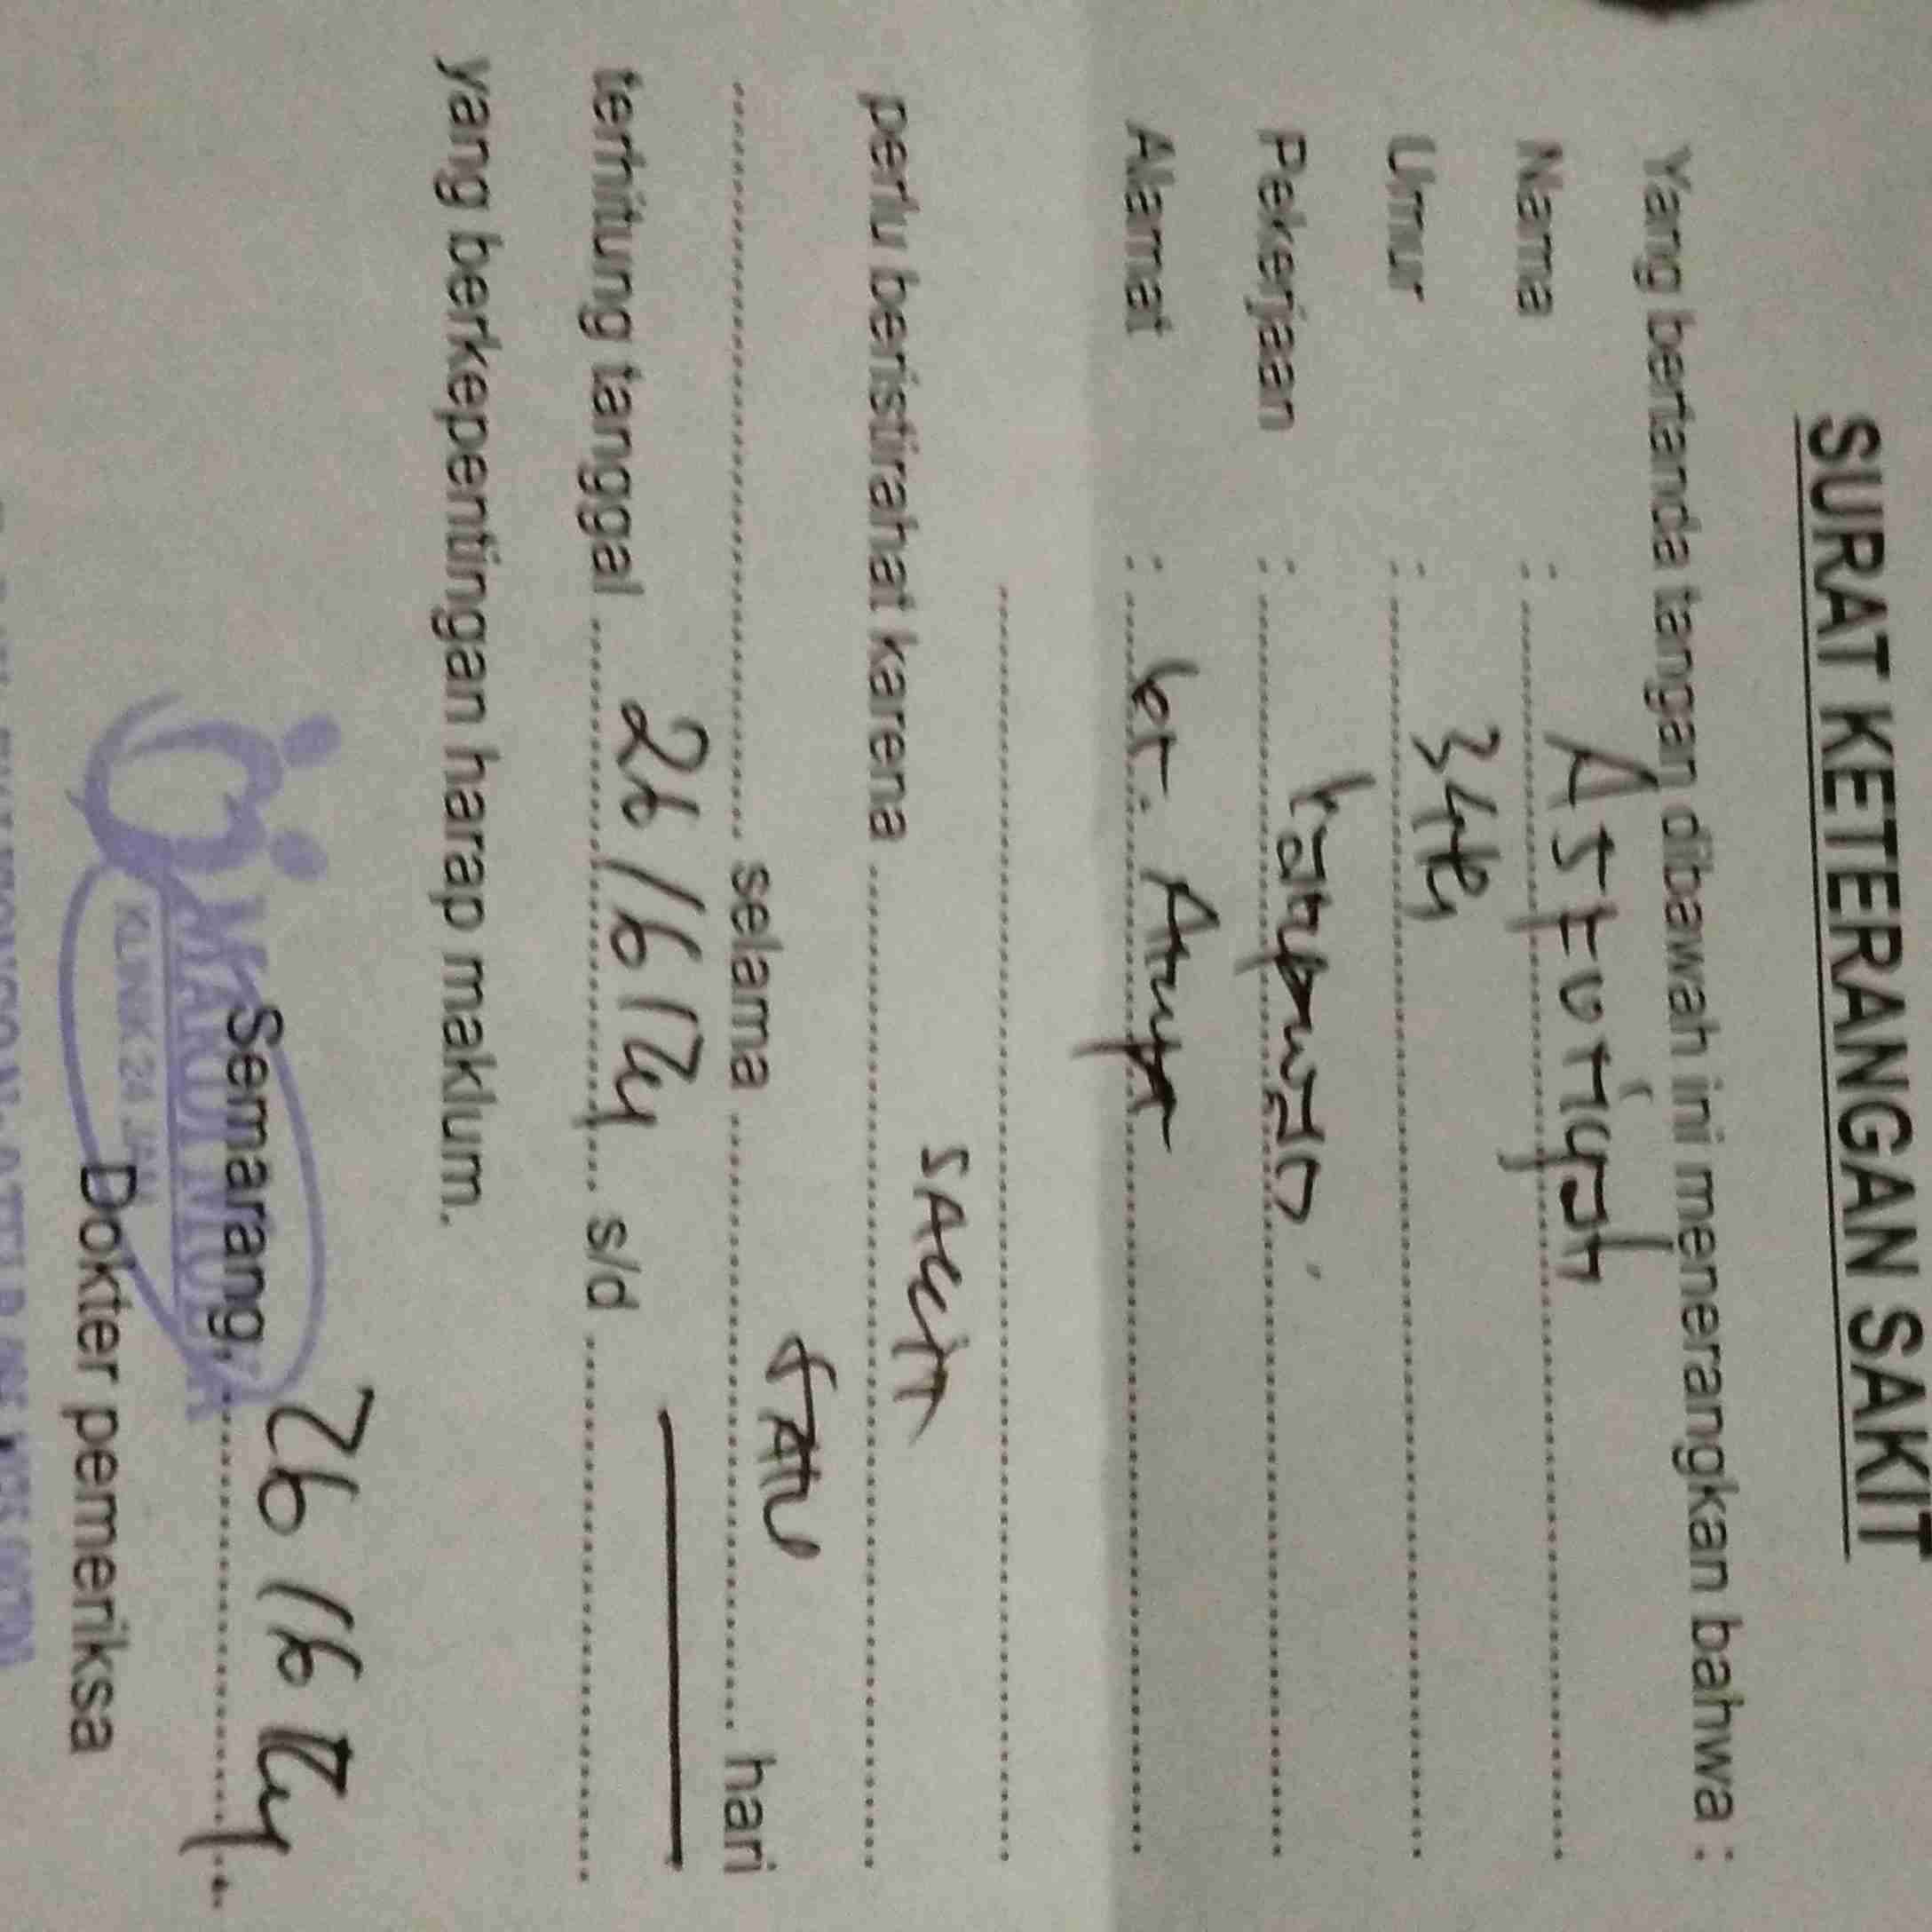 SURAT KETERANGAN SAKIT
Yang bertanda tangan dibawah ini menerangkan bahwa :
Nama : Asturiyah
Umur : 34th
Pekerjaan : karyawan
Alamat :
perlu beristirahat karena SAKIT
selama SATU hari
terhitung tanggal 26/6/14 s/d
yang berkepentingan harap maklum.
Semarang, 26/6/14
Dokter pemeriksa
KLINIK 24 JAM